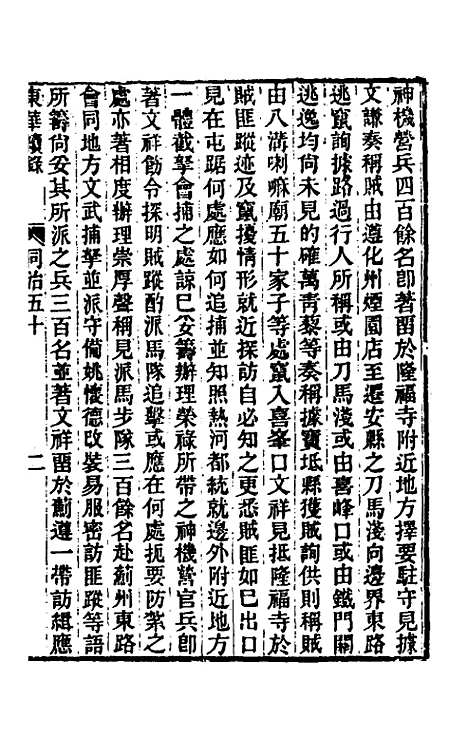 神機營兵四百餘名卽著畱於隆福寺附近地方擇要駐守見據
文謙奏稱賊由遵化州煙園店至遷安縣之刀馬淺向邊界東路
逃竄詢據路過行人所稱或由刀馬淺或由喜峰口或由鐵門關
逃逸均尚未見的確萬青藜等奏稱據寶坻縣獲賊詢供則稱賊
由八溝喇嘛廟五十家子等處竄入喜峯口文祥見抵隆福寺於
賊匪蹤迹及竄擾情形就近探訪自必知之更悉賊匪如已出口
見在屯踞何處應如何追捕並知照熱河都統就邊外附近地方
一體截拏會捕之處諒已妥籌辦理榮祿所帶之神機營官兵卽
著文祥飭令探明賊蹤酌派馬隊追擊或應在何處扼要防禦之
處亦著相度辦理崇厚聲稱見派馬步隊三百餘名赴薊州東路
會同地方文武捕拏並派守備姚懷德改裝易服密訪匪蹤等語
所籌尚妥其所派之兵三百名並著文祥畱於薊遵一帶訪緝應
東華續錄 同治五十 二